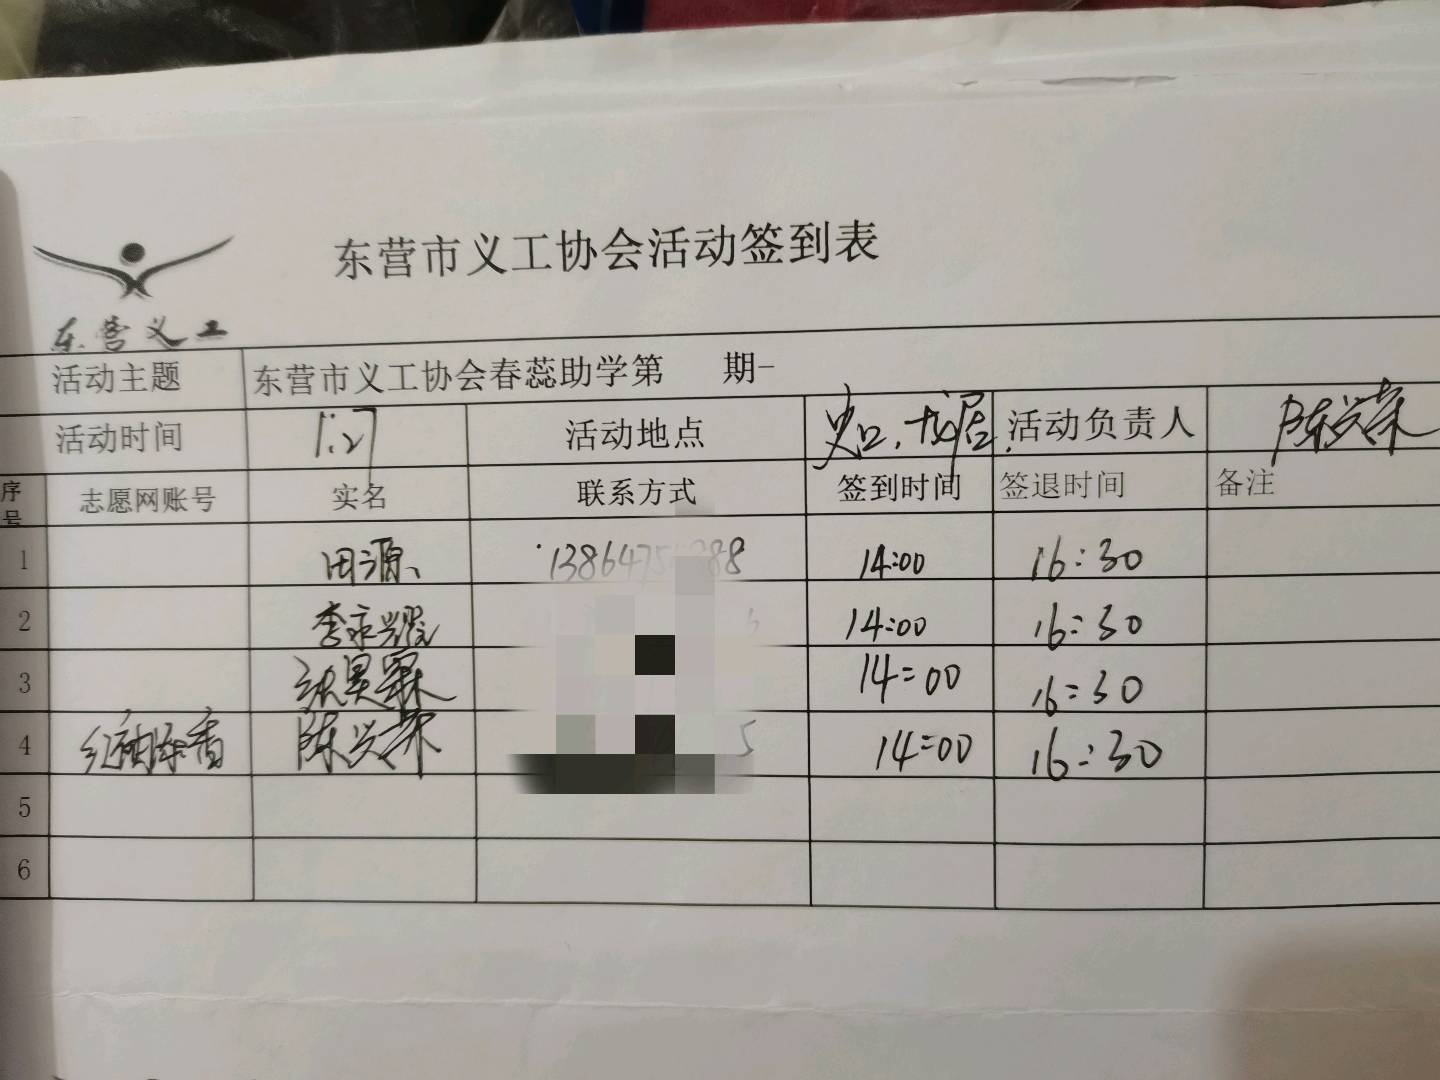 东营市义工协会活动签到表
东营义工
活动主题 东营市义工协会春蕊助学第 期-
活动时间 1.27 活动地点 史口.龙居 活动负责人 陈兴荣
序号 志愿网账号 实名 联系方式 签到时间 签退时间 备注
1 田源 14:00 16:30
2 李永耀 14:00 16:30
3 14:00 16:30
4 红袖添香 陈兴荣 5 14:00 16:30
5
6